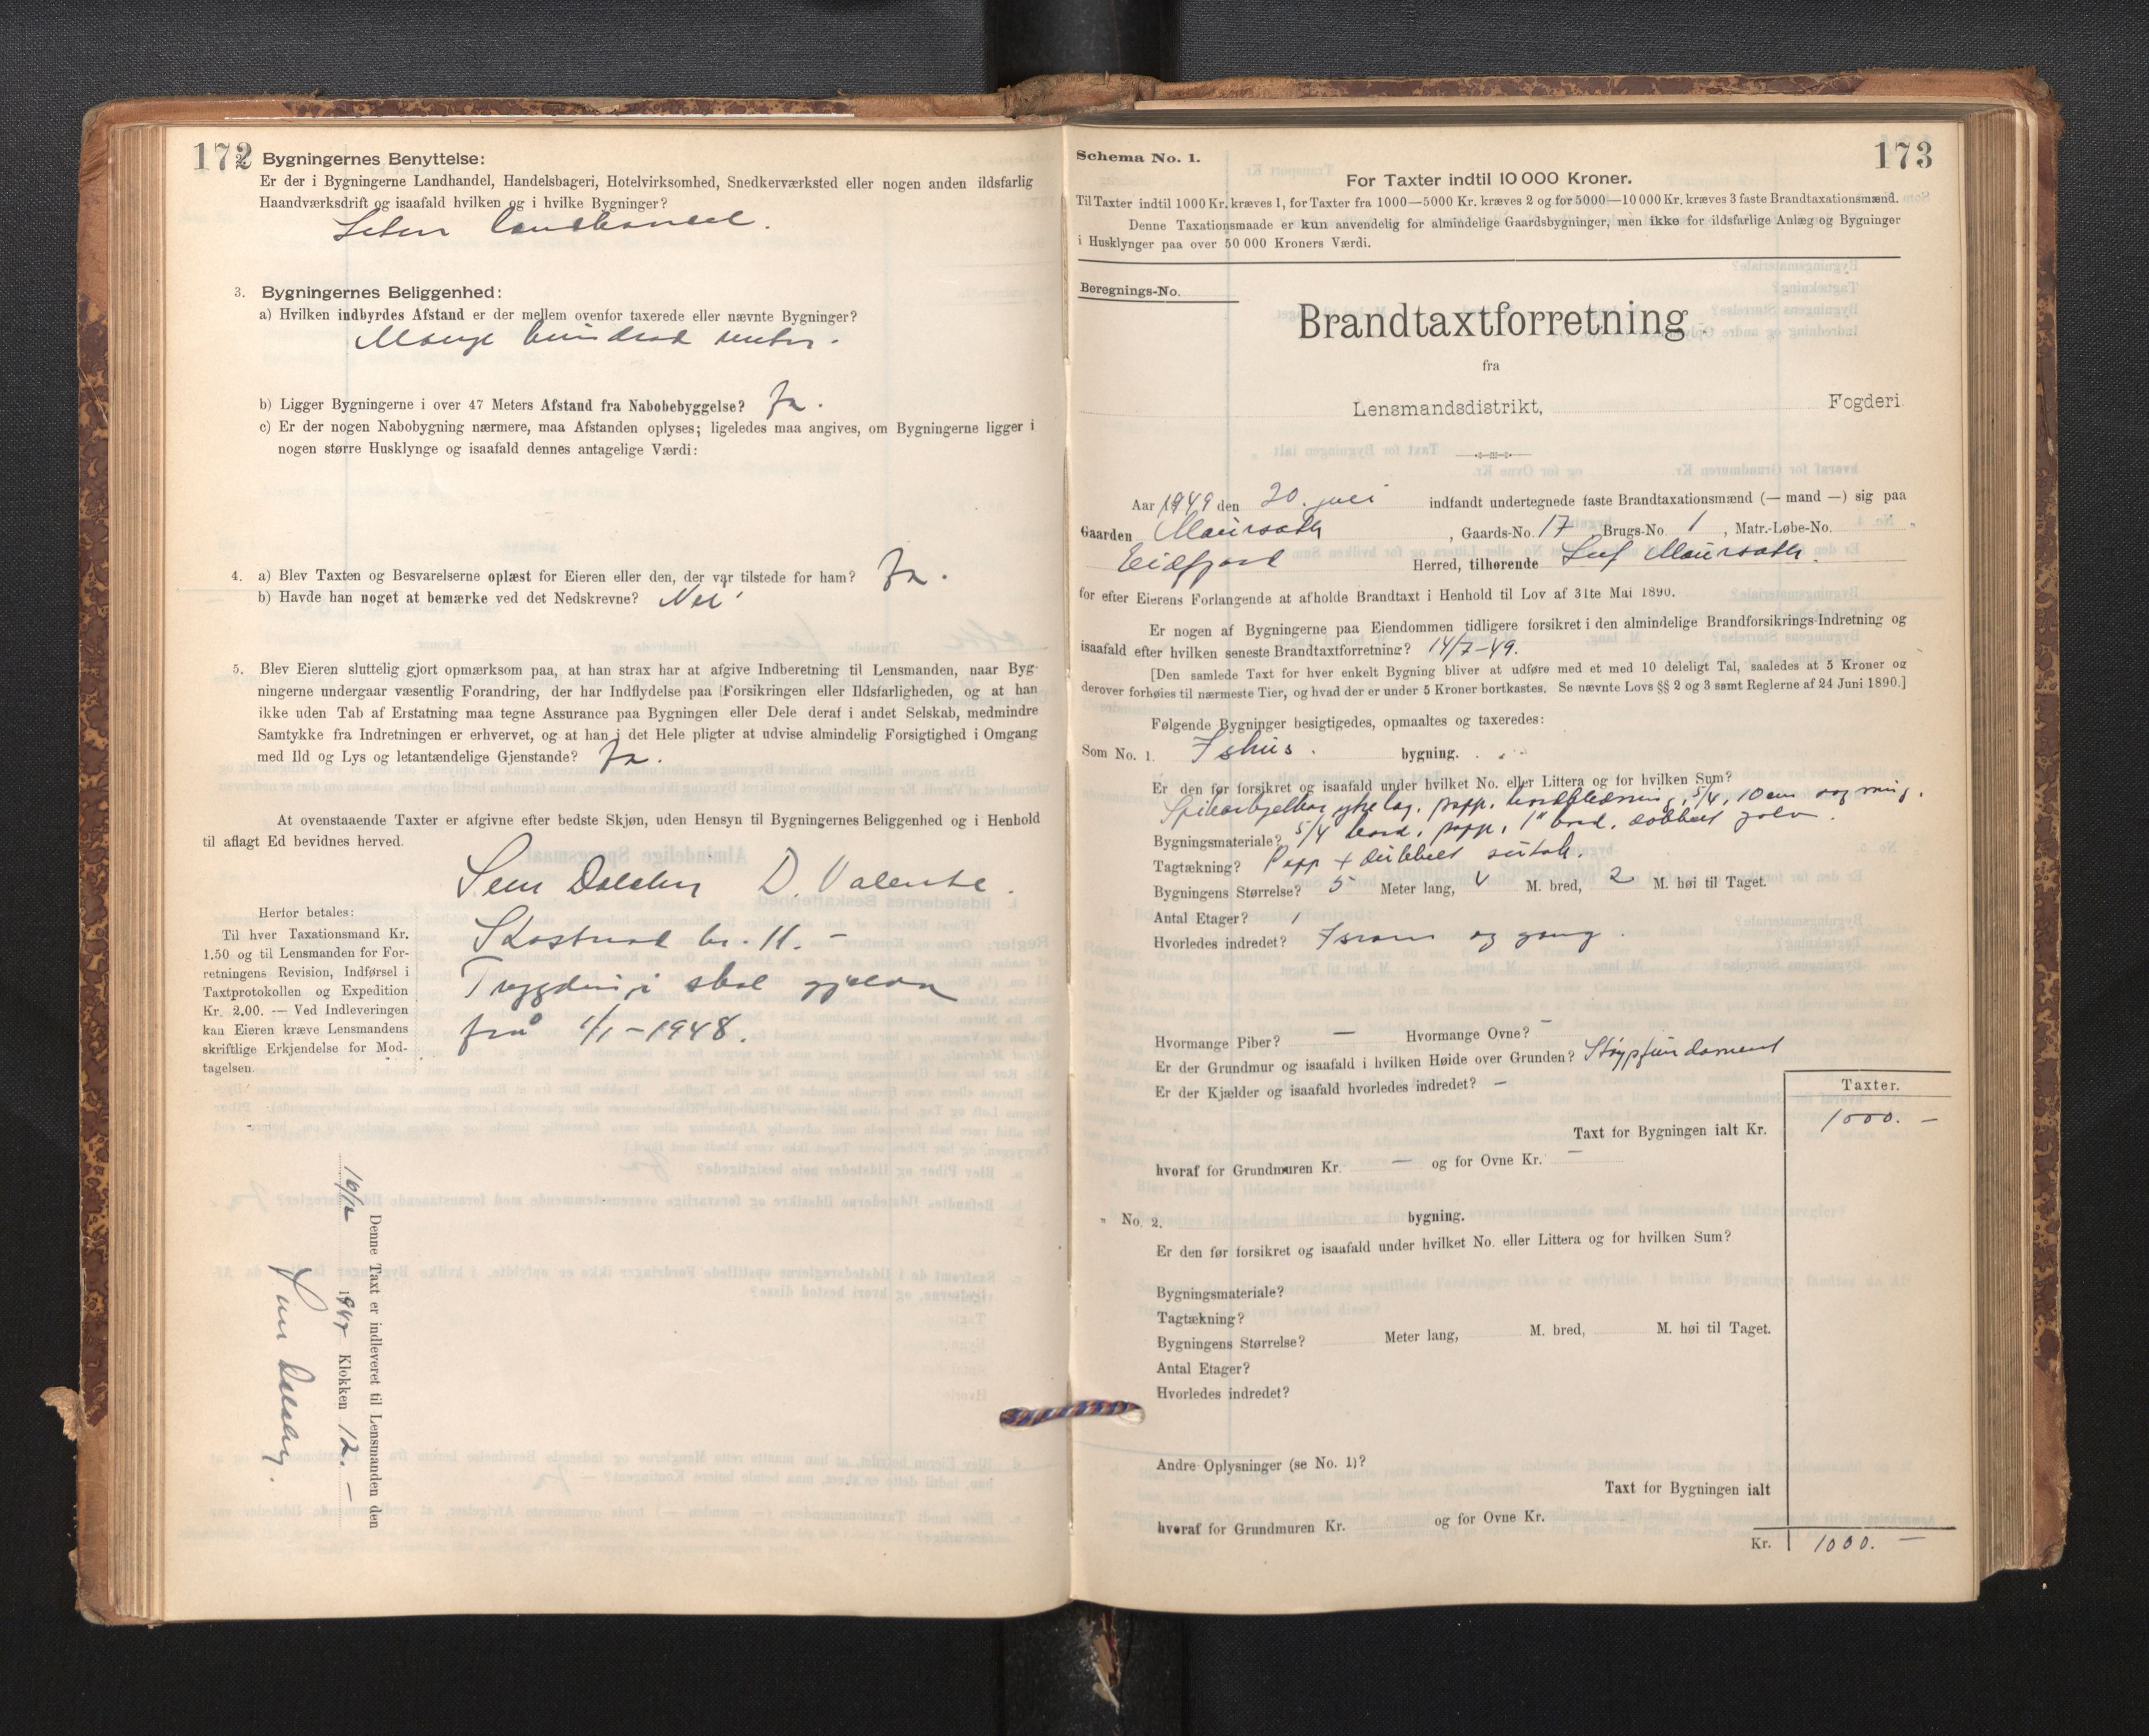 172
Bygningernes Benyttelse:
Er der i Bygningerne Landhandel, Handelsbageri, Hotelvirksomhed, Snedkerværksted eller nogen anden ildsfarlig
Haandværksdrift og isaafald hvilken og i hvilke Bygninger?
Liten landhandel.
3. Bygningernes Beliggenhed:
a) Hvilken indbyrdes Afstand er der mellem ovenfor taxerede eller nævnte Bygninger?
Mange hundrad meter.
b) Ligger Bygningerne i over 47 Meters Afstand fra Nabobebyggelse? Ja.
c) Er der nogen Nabobygning nærmere, maa Afstanden oplyses; ligeledes maa angives, om Bygningerne ligger i
nogen større Husklynge og isaafald dennes antagelige Værdi:
4. a) Blev Taxten og Besvarelserne oplæst for Eieren eller den, der var tilstede for ham? Ja.
b) Havde han noget at bemærke ved det Nedskrevne? Nei
5. Blev Eieren sluttelig gjort opmærksom paa, at han strax har at afgive Indberetning til Lensmanden, naar Byg-
ningerne undergaar væsentlig Forandring, der har Indflydelse paa Forsikringen eller Ildsfarligheden, og at han
ikke uden Tab af Erstatning maa tegne Assurance paa Bygningen eller Dele deraf i andet Selskab, medmindre
Samtykke fra Indretningen er erhvervet, og at han i det Hele pligter at udvise almindelig Forsigtighed i Omgang
med Ild og Lys og letantændelige Gjenstande? Ja.
At ovenstaaende Taxter er afgivne efter bedste Skjøn, uden Hensyn til Bygningernes Beliggenhed og i Henhold
til aflagt Ed bevidnes herved.
D. Valente.
Herfor betales:
Til hver Taxationsmand Kr.
1.50 og til Lensmanden for For-
retningens Revision, Indførsel i
Taxtprotokollen og Expedition
Kr. 2.00. — Ved Indleveringen
kan Eieren kræve Lensmandens
skriftlige Erkjendelse for Mod-
tagelsen.
Kostnad kr. 11.-
Trygdingi skal gjelda
frå 1/1-1948.
Denne Taxt er indleveret til Lensmanden den
16/12 1947 Klokken 12.-
173
Schema No. 1.
For Taxter indtil 10 000 Kroner.
Til Taxter indtil 1000 Kr. kræves 1, for Taxter fra 1000—5000 Kr. kræves 2 og for 5000—10 000 Kr. kræves 3 faste Brandtaxationsmænd.
Denne Taxationsmaade er kun anvendelig for almindelige Gaardsbygninger, men ikke for ildsfarlige Anlæg og Bygninger
i Husklynger paa over 50 000 Kroners Værdi.
Beregnings-No.
Brandtaxtforretning
fra
Lensmandsdistrikt, Fogderi
Aar 1949 den 20. juli indfandt undertegnede faste Brandtaxationsmænd (— mand —) sig paa
Gaarden Maursæth, Gaards-No. 17 Brugs-No. 1, Matr.-Løbe-No.
Eidfjord Herred, tilhørende Leif Maursæth.
for efter Eierens Forlangende at afholde Brandtaxt i Henhold til Lov af 31te Mai 1890.
Er nogen af Bygningerne paa Eiendommen tidligere forsikret i den almindelige Brandforsikrings-Indretning og
isaafald efter hvilken seneste Brandtaxtforretning? 14/7-49.
[Den samlede Taxt for hver enkelt Bygning bliver at udføre med et med 10 deleligt Tal, saaledes at 5 Kroner og
derover forhøies til nærmeste Tier, og hvad der er under 5 Kroner bortkastes. Se nævnte Lovs §§ 2 og 3 samt Reglerne af 24 Juni 1890.]
Følgende Bygninger besigtigedes, opmaaltes og taxeredes:
Som No. 1. Ishus. bygning.
Er den før forsikret og isaafald under hvilket No. eller Littera og for hvilken Sum?
papp, 5/4, 10 cm
Bygningsmateriale? 5/4 bord, papp, 1" bord, dobbelt golv.
Tagtækning? Papp + dubbelt sutak.
Bygningens Størrelse? 5 Meter lang, 4 M. bred, 2 M. høi til Taget.
Antal Etager? 1
Hvorledes indredet? Isrom og gang.
Hvormange Piber? — Hvormange Ovne? -
Er der Grundmur og isaafald i hvilken Høide over Grunden? Støypfundament
Er der Kjælder og isaafald hvorledes indredet? -
Taxter.
Taxt for Bygningen ialt Kr. 1000.-
hvoraf for Grundmuren Kr. — og for Ovne Kr. —
" No. 2. bygning.
Er den før forsikret og isaafald under hvilket No. eller Littera og for hvilken Sum?
Bygningsmateriale?
Tagtækning?
Bygningens Størrelse? Meter lang, M. bred, M. høi til Taget.
Antal Etager?
Hvorledes indredet?
Andre Oplysninger (se No. 1)?
Taxt for Bygningen ialt
hvoraf for Grundmuren Kr. og for Ovne Kr.
Kr. 1000.-